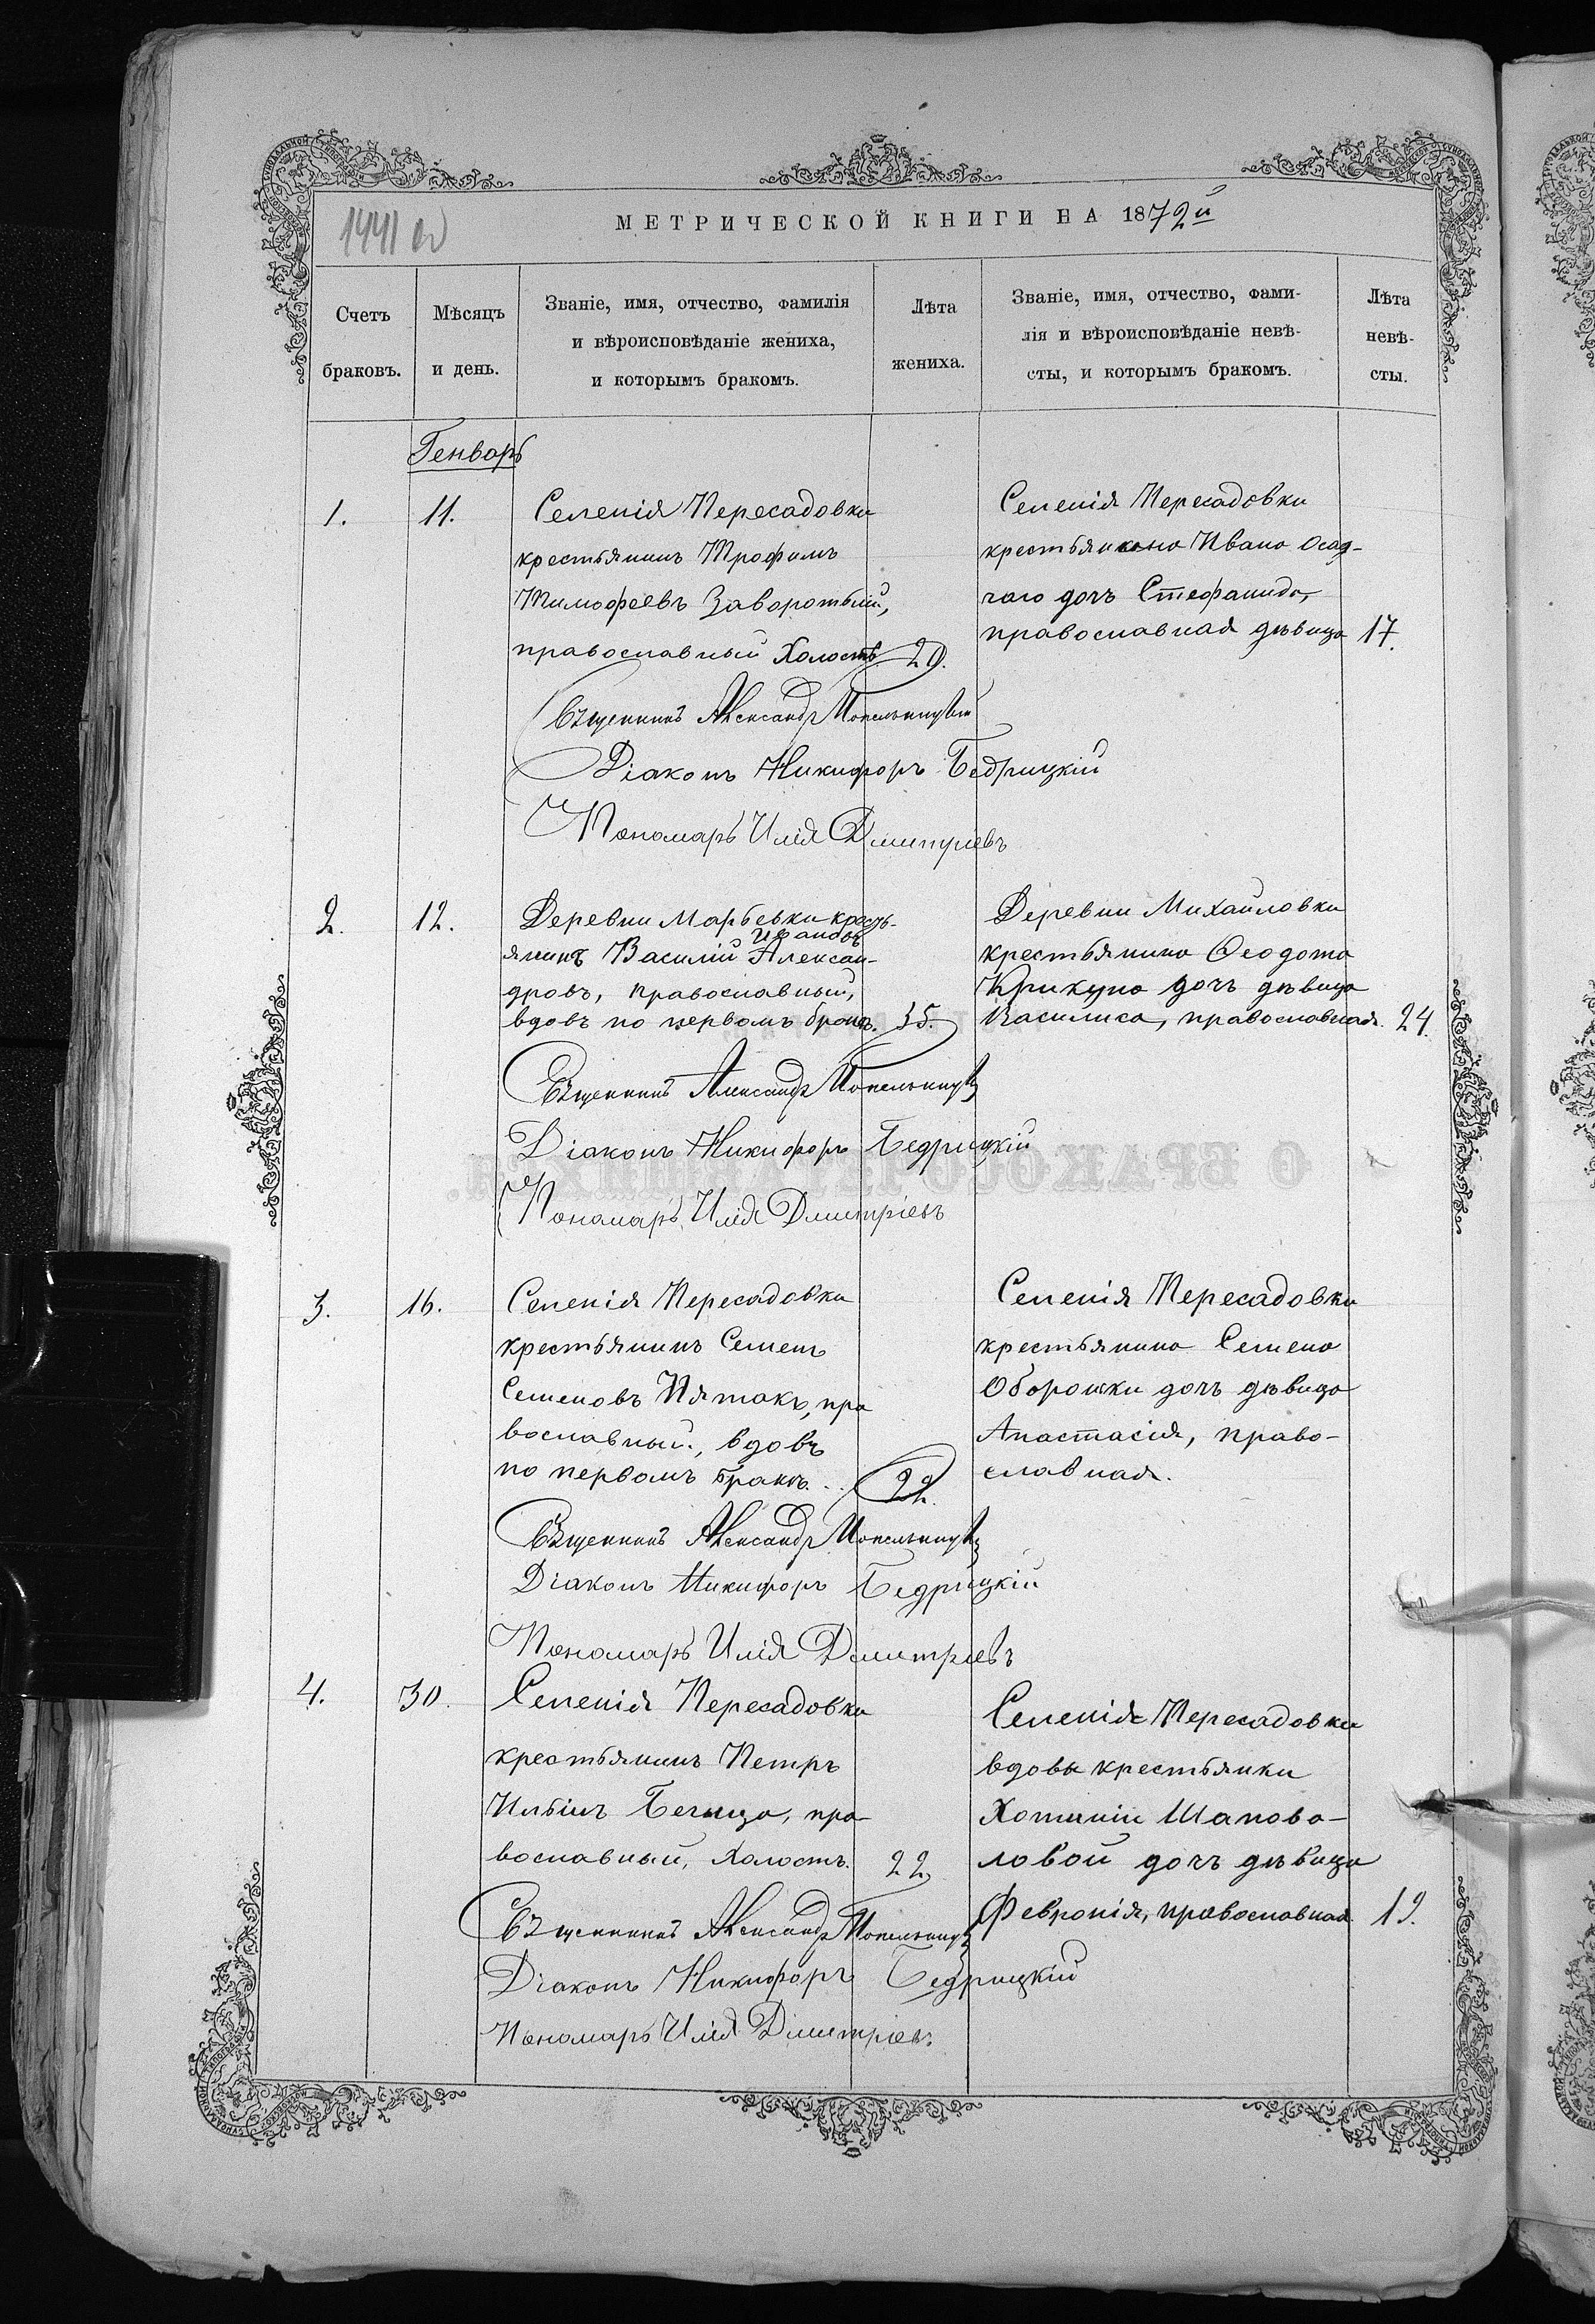 1441 об
МЕТРИЧЕСКОЙ КНИГИ НА 1872й
Счетъ браковъ.
Мѣсяцъ и день.
Званіе, имя, отчество, фамилія
и вѣроисповѣданіе жениха,
и которымъ бракомъ.
Лѣта жениха.
Званіе, имя, отчество, фами-
лія и вѣроисповѣданіе невѣ-
сты, и которымъ бракомъ.
Лѣта невѣ-
сты.
Генварь
1.
11.
Селенія Пересадовки
крестьянинъ Трофимъ
Тимофеевъ Заворотный,
православный Холостъ 20.
Селенія Пересадовки
крестьянина Ивана Осад-
чаго дочъ Стефанида,
православная дѣвица 17.
Священникъ Александр
Діаконъ Никифоръ Бедрицкій
Пономарь Илія Дмитріевъ
2.
12.
Деревни Марьевки кресть-
Ивановъ
янинъ Василій Алексан-
дровъ, православный,
вдовъ по первомъ бракѣ. 35.
Деревни Михайловки
крестьянина Феодота
Крикуна дочъ дѣвица
Василиса, православная. 24.
Священникъ Александр
Діаконъ Никифоръ Бедрицкій
Пономарь Илія Дмитріевъ
3.
16.
Селенія Пересадовки
крестьянинъ Семенъ
Семеновъ Пятакъ, пра
вославный, вдовъ
по первомъ бракѣ. . . 22.
Селенія Пересадовки
крестьянина Семена
Оборошки дочъ дѣвица
Анастасія, право-
славная.
Священникъ Александр
Діаконъ Никифоръ Бедрицкій
Пономарь Илія Дмитріевъ
4.
30.
Селенія Пересадовки
крестьянинъ Петръ
Ильинъ пра
вославный, Холостъ. 22.
Селенія Пересадовки
вдовы крестьянки
Хотиніи Шапова-
ловой дочъ дѣвица
Февронія, православная 19.
Священникъ Александр
Діаконъ Никифоръ Бедрицкій
Пономарь Илія Дмитріевъ.